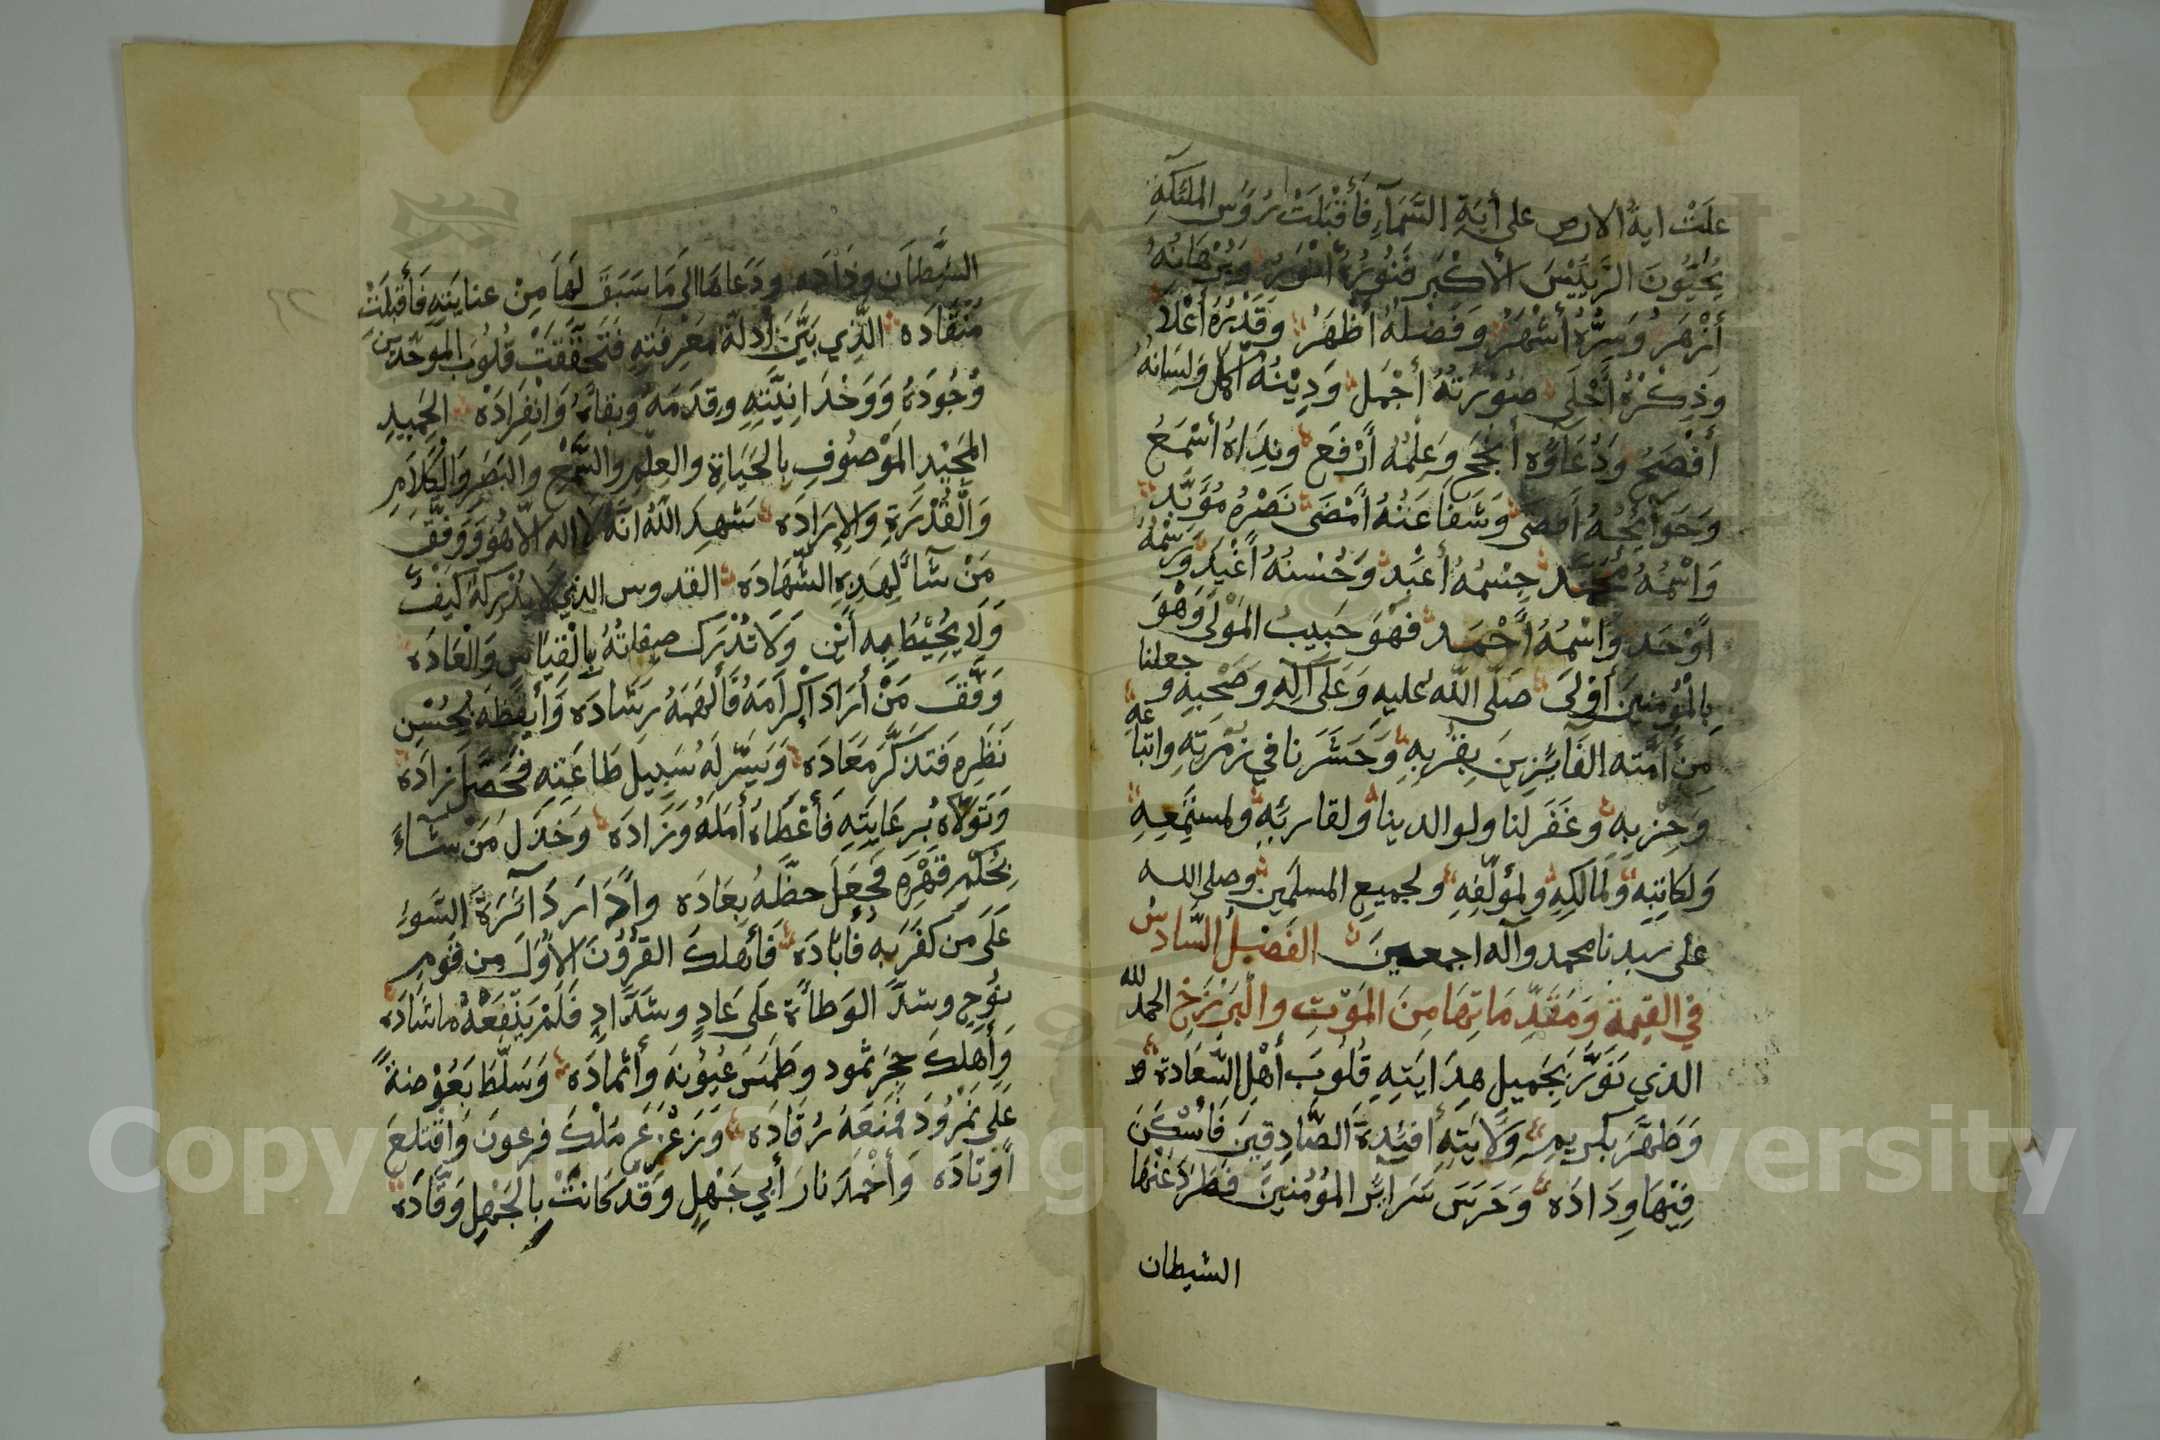 علَتْ اية الارض على أيَةِ السَّمَآءِ فَأَقْبَلَتْ رُؤُس الملئكَةِ
يُحَيُّونَ الرَّئِيْسَ الأكْبَر فَنُورُهُ أنْوَرُ وَبُرْهَانُهُ
أزْهَرُ وَسِرُّهُ أشْهَرُ وَفَضْلُهُ أظْهَرُ وَقَدْرُهُ أعْلاَ
وَذِكْرُهُ أَحْلَى صُوْرَتُهُ أجْمَل وَدِيْنُهُ أكمل وَلِسَانهُ
أفْصَحُ وَدُعَاؤُه أنجَح وَعِلْمُه أرْفَع وندَاهُ أسْمَعُ
وَحَوآئِجُهُ أقضَى وَشَفَاعَتُهُ أمْضَى نَصْرُهُ مُؤَبَّد
وَاسْمُهُ مُحَمَّد جِسْمُهُ أعبَد وَحُسْنُهُ أغْيَد وَرَسْمُهُ
أوْحَد وَاسْمُهُ أحْمَد فهْوَ حَبِيبُ المَوْلَى وَهْوَ
بِالْمُؤمِنِينَ أوْلَى صَلَّى اللّه عليهِ وَعَلَى آلِهِ وَصَحْبِهِ و جعلنا
مِنَ أمّته الفَآئِزِينَ بِقُرْبِهِ وَحَشَرَنا في زمْرَتِهِ واتباعهِ
وَحِزْبِهِ وغَفَرَ لنا ولوالدينا ولقارئِهِ ولمستَمِعِهِ
وَلكاتِبِهِ وَلمَالِكِهِ ولمؤلّفِهِ ولجميعِ المسلمين وصلى الله
على سيدنا محمد وآله اجمعين الفَصْلُ السَّادسُ
في القيمة وَمُقَدّمَاتِهَا مِنَ المَوْتِ والْبَرْزَخِ الحمد لله
الذي نَوَّرَ بجَميل هِدَايَتِهِ قُلُوبَ أهْلِ السَّعَادة
وَطهَّرَ بكريم وَلاَيَتِهِ أفئِدةَ الصَّادِقِينَ فَاُسْكَنَ
فِيْهَا وِدَادَه وَحَرَسَ سَرَايرَ المؤمِنينَ فَطَرَدَ عَنْهَا
الشيطان
السَّيطَانَ وذادَه وَدَعَاهَا الىَ مَا سَبَقَ لَهَا مِنْ عنايَتِهِ فَأقْبَلَتْ
مُنْقَادَه الَّذِي بَيَّنَ أدلة مَعْرِفَتِهِ فَتَحقَّقَتْ قُلُوبَ الموحّدينَ
وُجُودَهُ وَوَحْدَانِيَّتِهِ وقدمَه وبقاءه وَانفِرَادَه الحميدِ
المجيْدِ المَوْصُوفِ بِالحَيَاةِ والعِلْمِ والسَّمْعِ والبَصَرِ وَالْكَلاَمِ
وَالْقُدْرَةِ وَالإرَادَه شَهِدَ اللّهُ انَّهُ لا اله الاّ هُوَ وَوَفَّقَ
مَنْ شآَ لِهَذِهِ الشّهَادَه القدوس الذي لا يُدْرِكهُ كَيْفٌ
وَلا يُحِيْطُ بِه أيْن وَلاَ تُدْرَكُ صِفاتُهُ بِالْقِيَاسِ وَالْعَادَه
وَفَّقَ مَنْ أرَادَ اكْرَامَهُ فَألهَمَهُ رَشَادَه وَأيقَظَهُ بِحُسْنِ
نَظَرِهِ فَتَذكَّرَ مَعَادَه وَيَسَّرَ لَهُ سَبِيلَ طَاعَتِهِ فحَصَّلَ زادَه
وَتَوَلاّهُ بُرِعَايَتِهِ فَأعْطَاهُ أمَلَهُ وَزَادَه وَخذَلَ مَنْ شاءَ
بِحُكْمِ قَهْرِهِ فجَعَلَ حظَّهُ بِعَادَه وأدَارَ دَآئِرَةَ السّوءِ
عَلَى مَن كفَرَ بِهِ فأبَادَه فَأهلكَ القرُوْنَ الأوَلَ مِن قومِ
نوحٍ وشدَّ الوَطأة عَلَى عَادٍ وشَدَّادٍ فَلَمْ يَنْفَعْهُ ما شَادَه
وَأهلكَ حِجرَ ثمود وطمَسَ عُيُوْنَه وأثمادَه وَسَلّطَ بَعُوْضةً
عَلَى نمْرُودَ فمَنَعَهُ رُقَادَه وَزَعْزَعَ مُلْكَ فرعونَ وَاقْتلعَ
أوْتادَه وَأخْمَدَ نارَ أبي جَهْلٍ وَقد كانتْ بالجَهْلِ وَقَّادَه